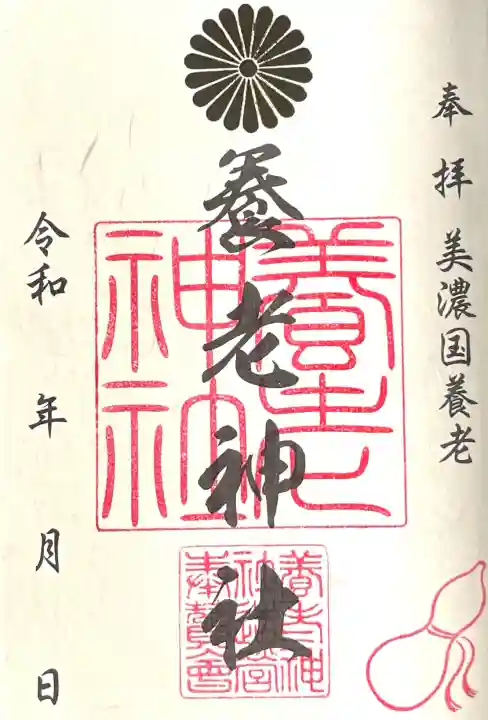 奉拝 美濃国養老
養老神社
養老
神社
令和 年 月 日